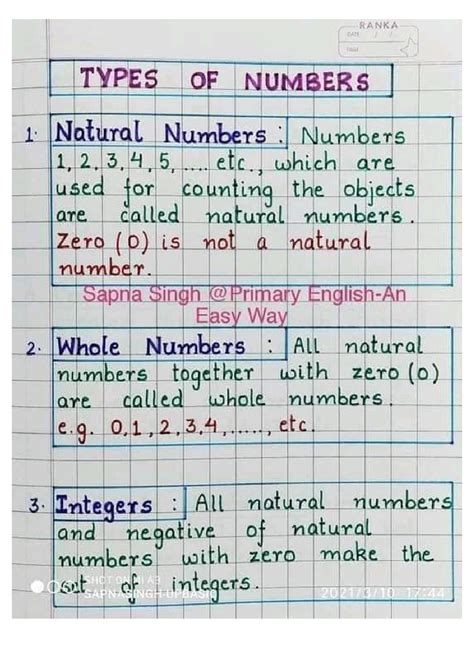 RANKA
DATE / /
PAGE
TYPES OF NUMBERS
1. Natural Numbers : Numbers
1, 2, 3, 4, 5, .... etc., which are
used for counting the objects
are called natural numbers.
Zero (0) is not a natural
number.
Sapna Singh @Primary English-An
Easy Way
2. Whole Numbers : All natural
numbers together with zero (0)
are called whole numbers.
e.g. 0,1,2,3,4,....., etc.
3. Integers : All natural numbers
and negative of natural
numbers with zero make the
set of integers.
SHOT ON MI A3
SAPNASINGH-UPBASIC
2021/3/10 17:44